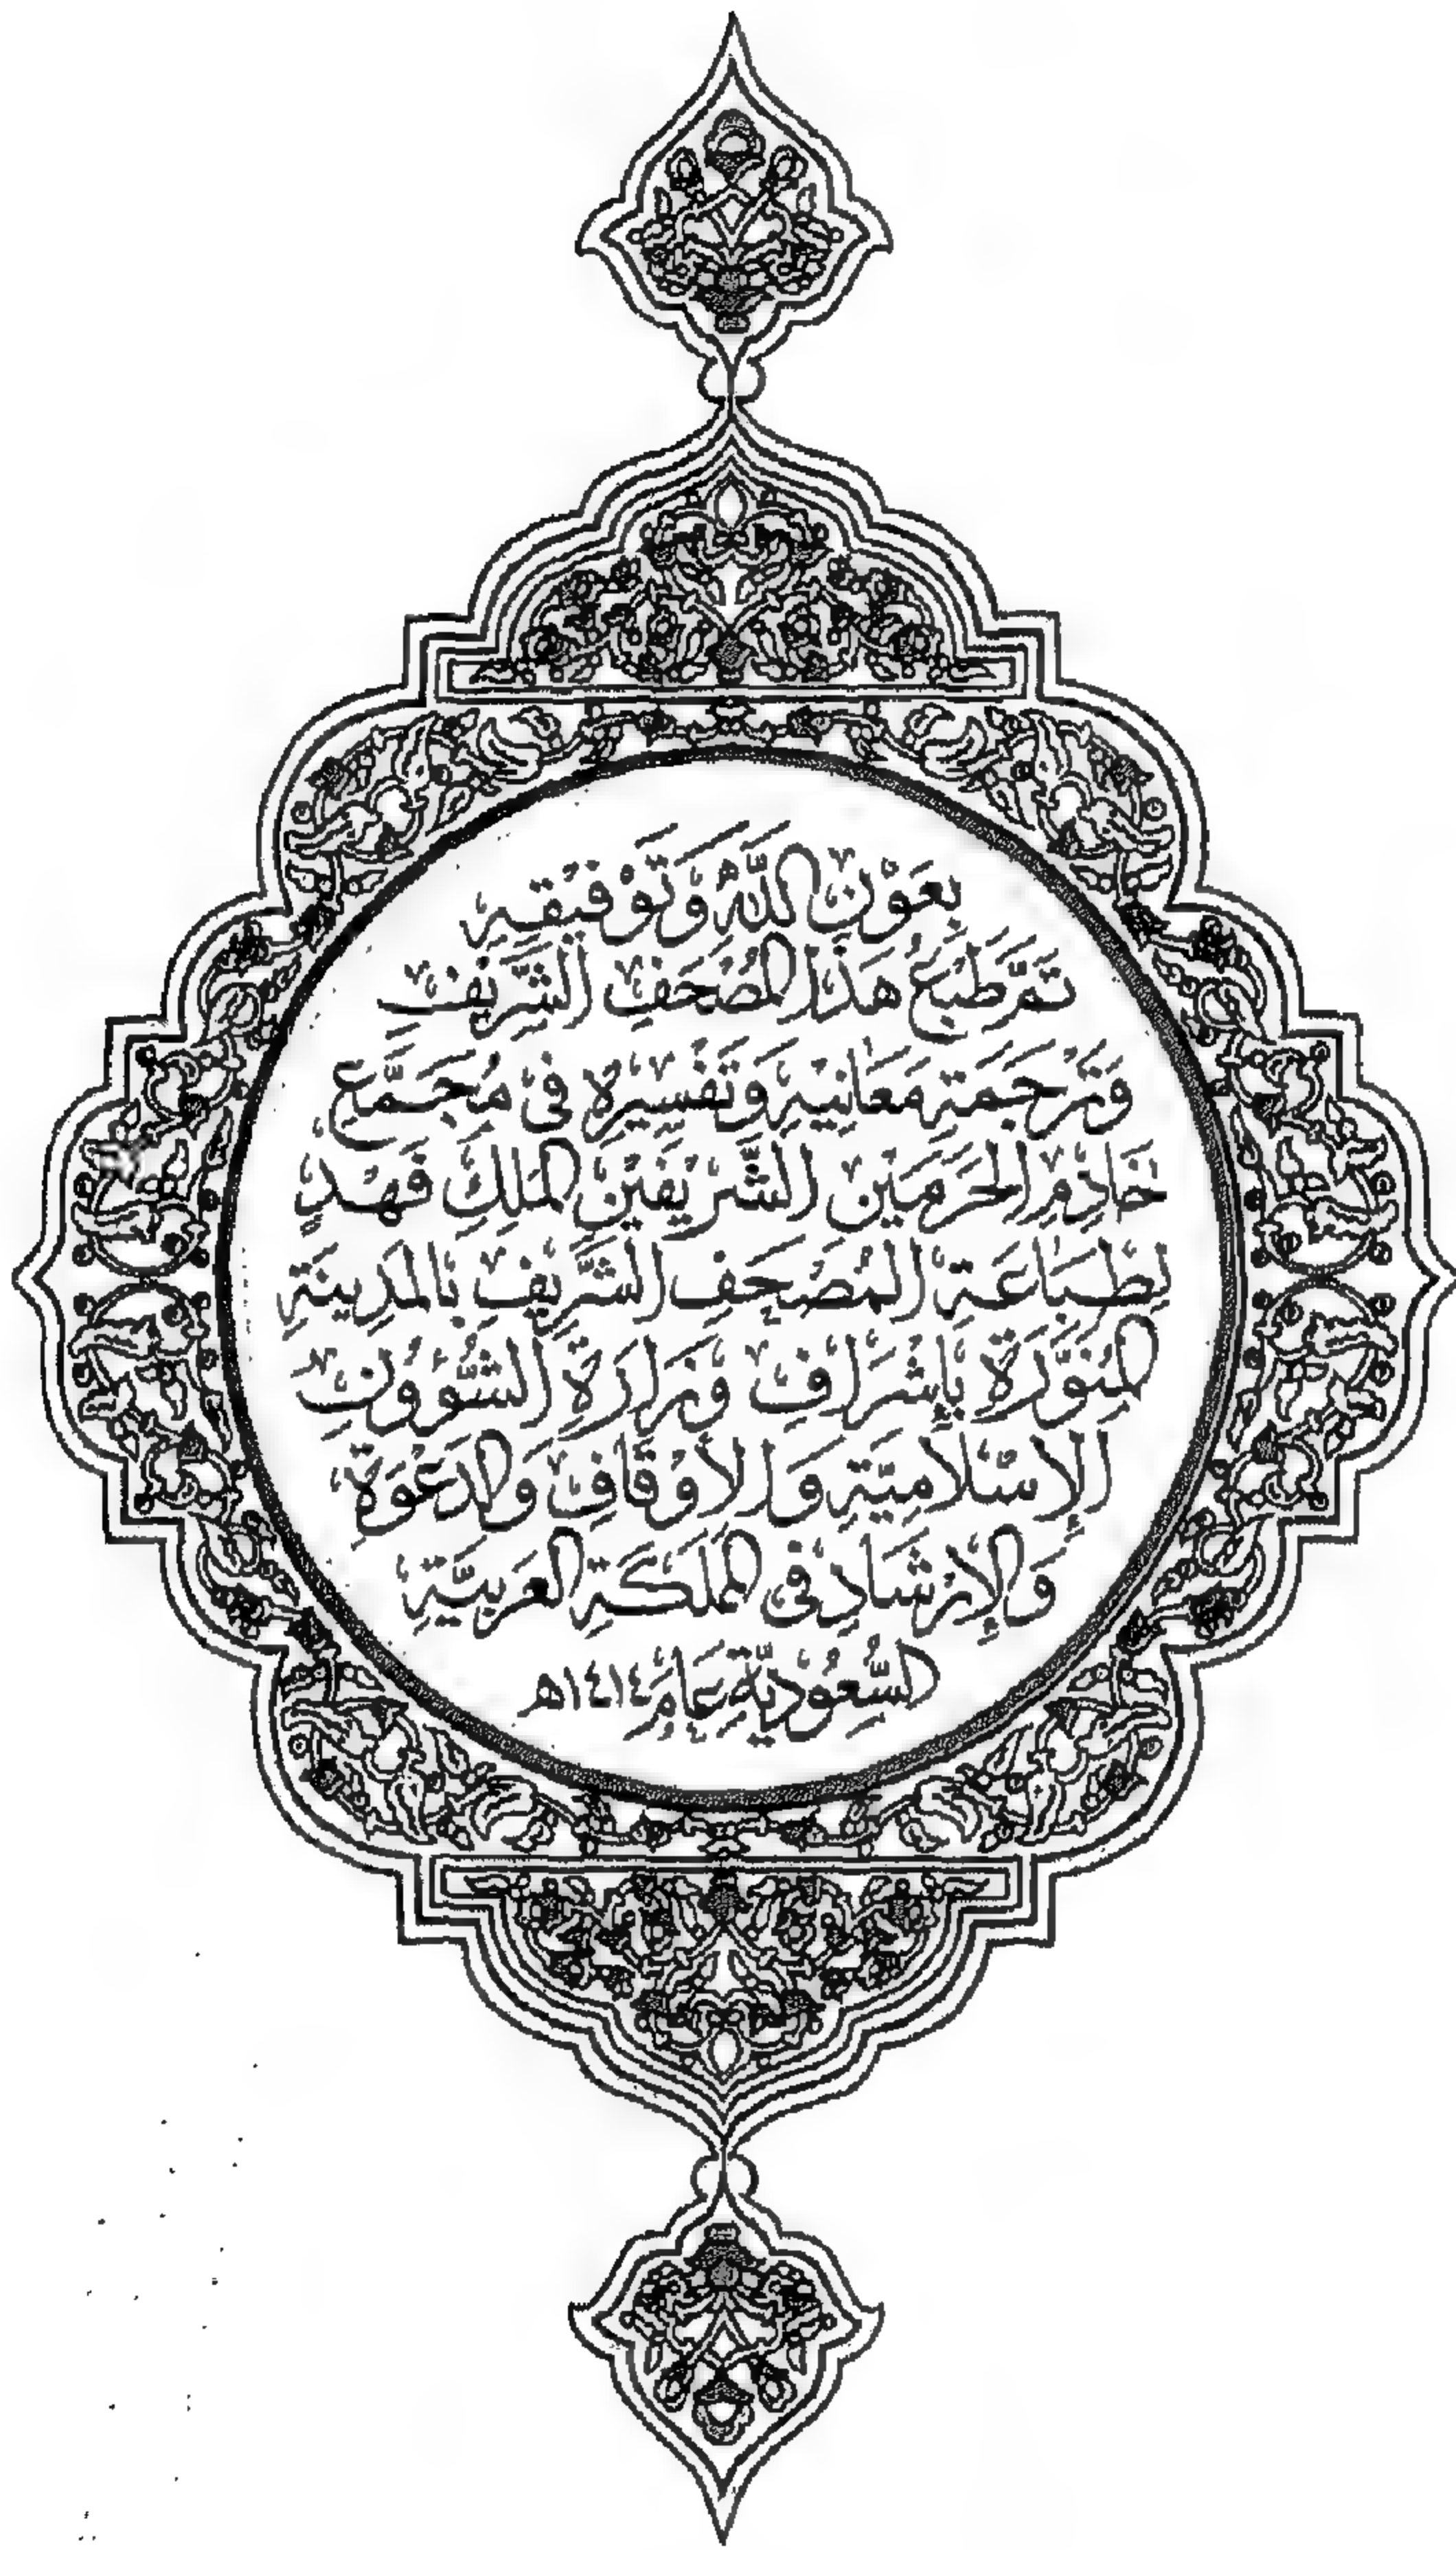 بِعَوْنِ اللَّهِ وَتَوْفِيْقِهِ
تَمَّ طَبْعُ هَذَا الْمُصْحَفِ الشَّرِيْفِ
وَتَرْجَمَةِ مَعَانِيْهِ وَتَفْسِيْرِهِ فِى مُجَمَّعِ
خَادِمِ الْحَرَمَيْنِ الشَّرِيْفَيْنِ الْمَلِكِ فَهْدٍ
لِطِبَاعَةِ الْمُصْحَفِ الشَّرِيْفِ بِالْمَدِينَةِ
الْمُنَوَّرَةِ بِإِشْرَافِ وَزَارَةِ الشُّؤُوْنِ
الْإِسْلَامِيَّةِ وَالْأَوْقَافِ وَالدَعْوَةِ
وَالْإِرْشَادِ فِى الْمَمْلَكَةِ الْعَرَبِيَّةِ
السُّعُوْدِيَّةِ عَامَ ١٤١٤هـ